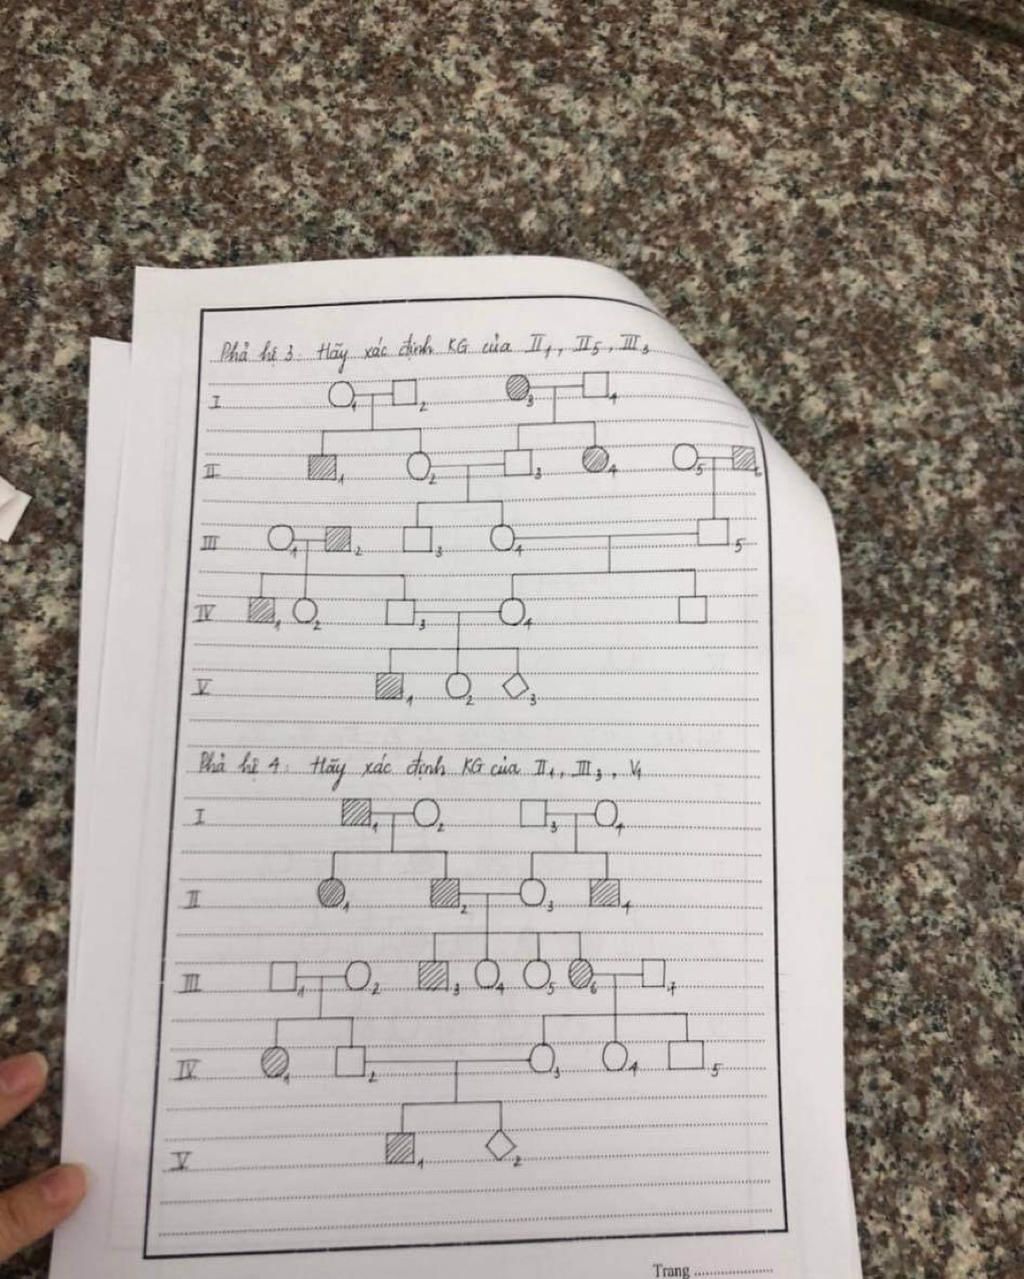 Phả hệ 3: Hãy xác định KG của II1, II5, III3
I 1 2 3 4
II 1 2 3 4 5 6
III 1 2 3 4 5
IV 1 2 3 4
V 1 2 3
Phả hệ 4: Hãy xác định KG của II1, III3, V1
I 1 2 3 4
II 1 2 3 4
III 1 2 3 4 5 6 7
IV 1 2 3 4 5
V 1 2
Trang